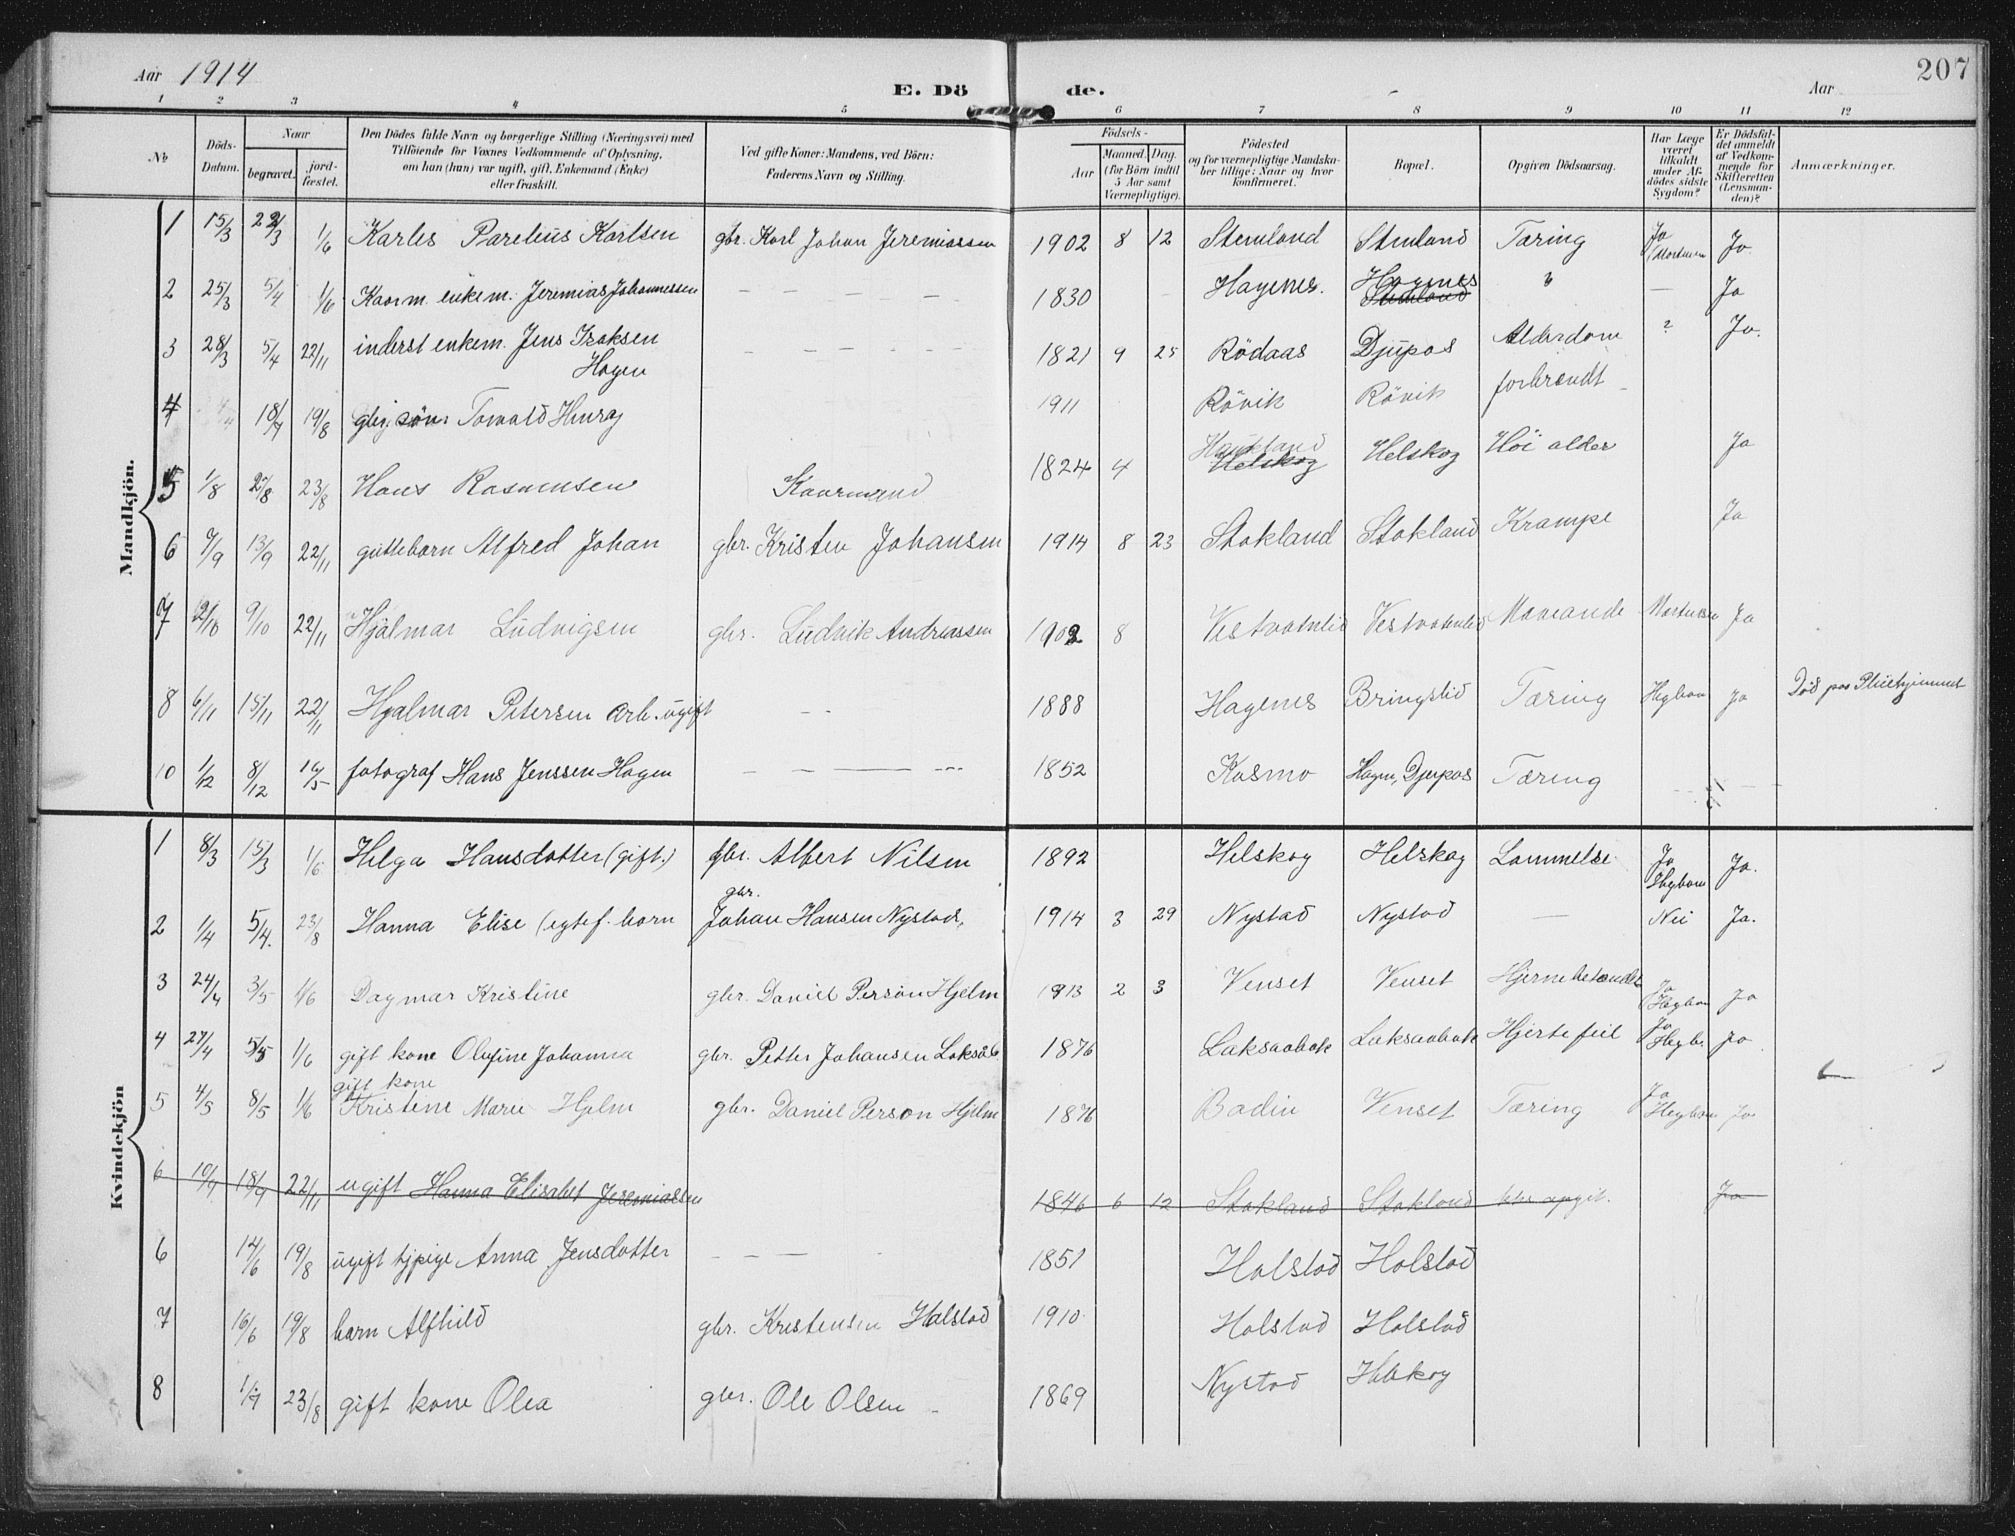 Aar 1914
E. Dö de.
Aar
207
1 2 3 4 5 6 7 8 9 10 11 12
No
Döds-Datum.
Naar
begravet.
jord-fæstet.
Den Dödes fulde Navn og borgerlige Stilling (Næringsvei) med
Tilföiende for Voxnes Vedkommende af Oplysning,
om han (hun) var ugift, gift, Enkemand (Enke)
eller fraskilt.
Ved gifte Koner: Mandens, ved Börn:
Faderens Navn og Stilling.
Födsels-
Aar
Maaned. Dag.
(for Börn indtil
5 Aar samt
Værnepligtige).
Födested
og for værnepligtige Mandska-
ber tillige: Naar og hvor
konfirmeret.
Bopæl.
Opgiven Dödsaarsag.
Har Læge
været
tilkaldt
under Af-
dödes sidste
Sygdom?
Er Dödsfal-
det anmeldt
af Vedkom-
mende for
Skifteretten
(Lensman-
den)?
Anmærkninger.
Mandkjön.
1 15/3 22/3 1/6 Karles Parelius Karlsen gbr. Karl Johan Jeremiassen 1902 8 12 Stemland Stemland Tæring Ja Ja
2 25/3 5/4 1/6 Kaarm. enkem. Jeremias Johannessen — — — — 1830 — Hagenes. Hagenes Stemland " — Ja
3 28/3 5/4 22/11 inderst enkem. Jens Isaksen Hagen — — — — 1821 9 25 Rödaas Djupos Alderdom ? Ja.
4 18/7 19/8 gbr. sön Torvald Henry 1911 Rövik Rövik forbrændt
5 1/8 23/8 Hans Rasmussen Kaarmand 1824 4 Haukland Helskog Helskog Höi alder Ja
6 7/9 13/9 22/11 guttebarn Alfred Johan gbr. Kristen Johansen 1914 8 23 Stokland Stokland Krampe Ja
7 9/10 22/11 Hjalmar Ludvigsen gbr. Ludvik Andreassen 1902 8 Vestvatnlid Vestvatnlid Ja
8 6/11 15/11 22/11 Hjalmar Petersen arb. ugift — — 1888 Hagenes Bringslid Tæring Hygbom Ja Död paa Pleiehjemmet
10 1/12 8/12 16/5 fotograf Hans Jenssen Hagen — — — 1852 Kosmo Hagen, Djupos Tæring
Kvindekjön
1 8/3 15/3 1/6 Helga Hansdatter (gift.) gbr. Albert Nilsen 1892 Helskog Helskog Lammelse Ja Hygbom Ja.
2 1/4 5/4. 23/8 Hanna Elise (egtef. barn gbr. Johan Hansen Nystad, 1914 3 29 Nystad Nystad — Nei Ja.
3 24/4 3/5 1/6 Dagmar Kristine gbr. Daniel Person Hjelm 1913 2 3 Venset Venset Hjernebetændelse Ja Hygbom Ja
4 27/4 5/5 1/6 gift kone Olufine Johanna gbr. Petter Johansen 1876 Laksaabak Laksaabak Hjertefeil Ja Hygb. Ja
5 4/5 8/5 1/6 gift kone Kristine Marie Hjelm gbr. Daniel Person Hjelm 1876 Bodin Venset Tæring Ja Hygbom Ja
6 10/9 18/9 22/11 ugift Hanna Elisabet Jeremiassen 1846 6 12 Stokland Stokland Ja
6 14/6 19/8 ugift tjpige Anna Jensdatter — — — 1851 Halstad Halstad
7 16/6 19/8 barn Alfhild gbr. Kristensen Halstad 1910 Halstad Halstad
8 1/7 23/8 gift kone Olea gbr. Ole Olsen 1869 Nystad Helskog